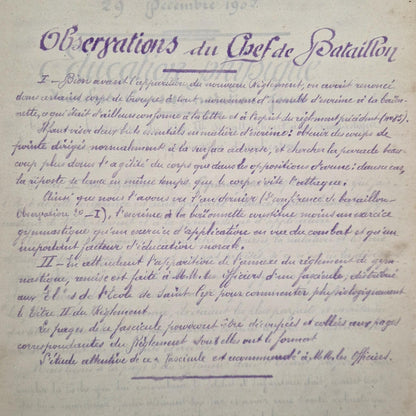 29 Décembre 1907.
Observations du Chef de Bataillon
I – Bien avant l'apparition du nouveau Règlement, on avait renoncé
dans certains corps de troupe à tout mouvement d'ensemble d'escrime à la baïon-
nette, ce qui était d'ailleurs conforme à la lettre et à l'esprit du règlement précédent
Il faut viser deux buts essentiels en matière d'escrime: obtenir des coups de
pointe dirigés normalement à la surface adverse, et chercher la parade beau-
coup plus dans l'agilité du corps que dans les oppositions d'arme: dans ce cas,
la riposte se lance en même temps que le corps évite l'attaque.
Ainsi que nous l'avons vu l'an dernier (1e conférence de bataillon-
Observation – I), l'escrime à la baïonnette constitue moins un exercice
gymnastique qu'un exercice d'application en vue du combat et qu'un
important facteur d'éducation morale.
II – En attendant l'apparition de l'annexe du règlement de gym-
nastique, remise est faite à MM. les officiers d'un fascicule, distribué
aux El. de l'École de Saint-Cyr pour commenter physiologiquement
le titre II du Règlement.
Les pages de ce fascicule pourront être découpées et collées aux pages
correspondantes du Règlement dont elles ont le format
L'étude attentive de ce fascicule est recommandée à MM. les Officiers.